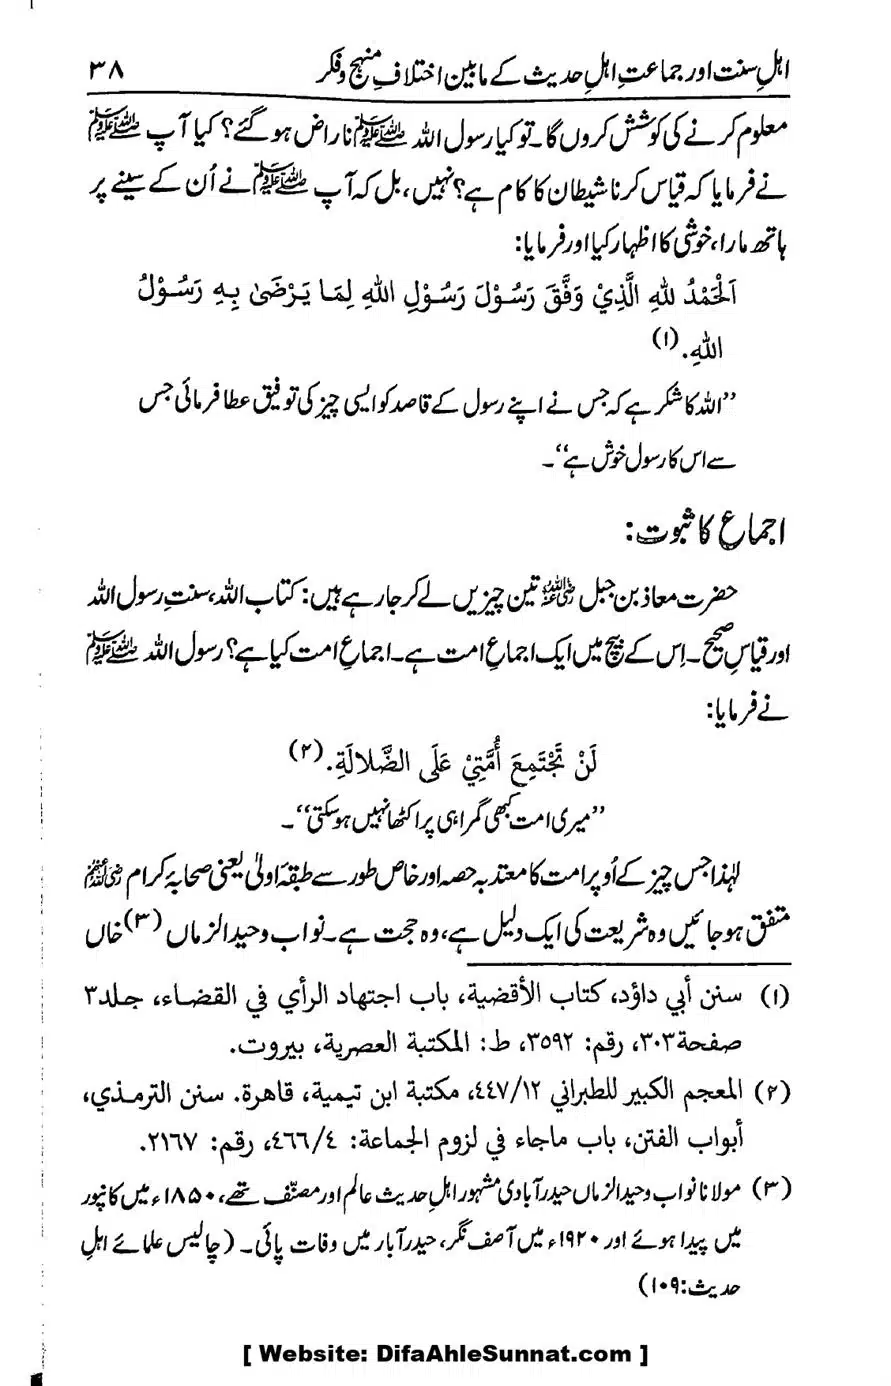 اہلِ سنت اور جماعتِ اہلِ حدیث کے مابین اختلافِ منہج و فکر ۳۸
معلوم کرنے کی کوشش کروں گا۔ تو کیا رسول اللہ ﷺ ناراض ہو گئے؟ کیا آپ ﷺ
نے فرمایا کہ قیاس کرنا شیطان کا کام ہے؟ نہیں، بل کہ آپ ﷺ نے اُن کے سینے پر
ہاتھ مارا، خوشی کا اظہار کیا اور فرمایا:
اَلْحَمْدُ للهِ الَّذِيْ وَفَّقَ رَسُوْلَ رَسُوْلِ اللهِ لِمَا يَرْضَىٰ بِهِ رَسُوْلُ
اللهِ. (۱)
’’اللہ کا شکر ہے کہ جس نے اپنے رسول کے قاصد کو ایسی چیز کی توفیق عطا فرمائی جس
سے اس کا رسول خوش ہے‘‘۔
اجماع کا ثبوت:
حضرت معاذ بن جبل رضی اللہ عنہ تین چیزیں لے کر جا رہے ہیں: کتاب اللہ، سنتِ رسول اللہ
اور قیاسِ صحیح۔ اِس کے بیچ میں ایک اجماعِ امت ہے۔ اجماعِ امت کیا ہے؟ رسول اللہ ﷺ
نے فرمایا:
لَنْ تَجْتَمِعَ أُمَّتِيْ عَلَى الضَّلالَةِ. (۲)
’’میری امت کبھی گمراہی پر اکٹھا نہیں ہو سکتی‘‘۔
لہٰذا جس چیز کے اُوپر امت کا معتد بہ حصہ اور خاص طور سے طبقۂ اولیٰ یعنی صحابۂ کرام رضی اللہ عنہم
متفق ہو جائیں وہ شریعت کی ایک دلیل ہے، وہ حجت ہے۔ نواب وحید الزماں (۳) خاں
(۱) سنن أبي داؤد، كتاب الأقضية، باب اجتهاد الرأي في القضاء، جلد۳
صفحة۳۰۳، رقم: ۳۵۹۲، ط: المكتبة العصرية، بيروت.
(۲) المعجم الكبير للطبراني ٤٤٧/١٢، مكتبة ابن تيمية، قاهرة. سنن الترمذي،
أبواب الفتن، باب ماجاء في لزوم الجماعة: ٤٦٦/٤، رقم: ٢١٦٧.
(۳) مولانا نواب وحید الزماں حیدرآبادی مشہور اہلِ حدیث عالم اور مصنّف تھے، ۱۸۵۰ء میں کانپور
میں پیدا ہوئے اور ۱۹۲۰ء میں آصف نگر، حیدرآباد میں وفات پائی۔ (چالیس علمائے اہلِ
حدیث: ۱۰۹)
[ Website: DifaAhleSunnat.com ]